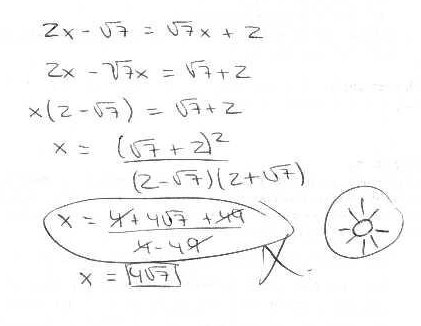 2x - √7 = √7x + 2
2x - √7x = √7 + 2
x(2 - √7) = √7 + 2
x = (√7 + 2)² / (2 - √7)(2 + √7)
x = 4 + 4√7 + 49 / 4 - 49
X.
x = 4√7